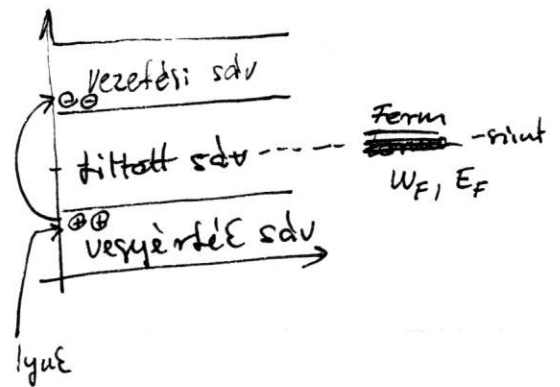 vezetési sáv
⊖⊖
tiltott sáv
Fermi
-szint
W_F, E_F
⊕⊕
vegyérték sáv
lyuk